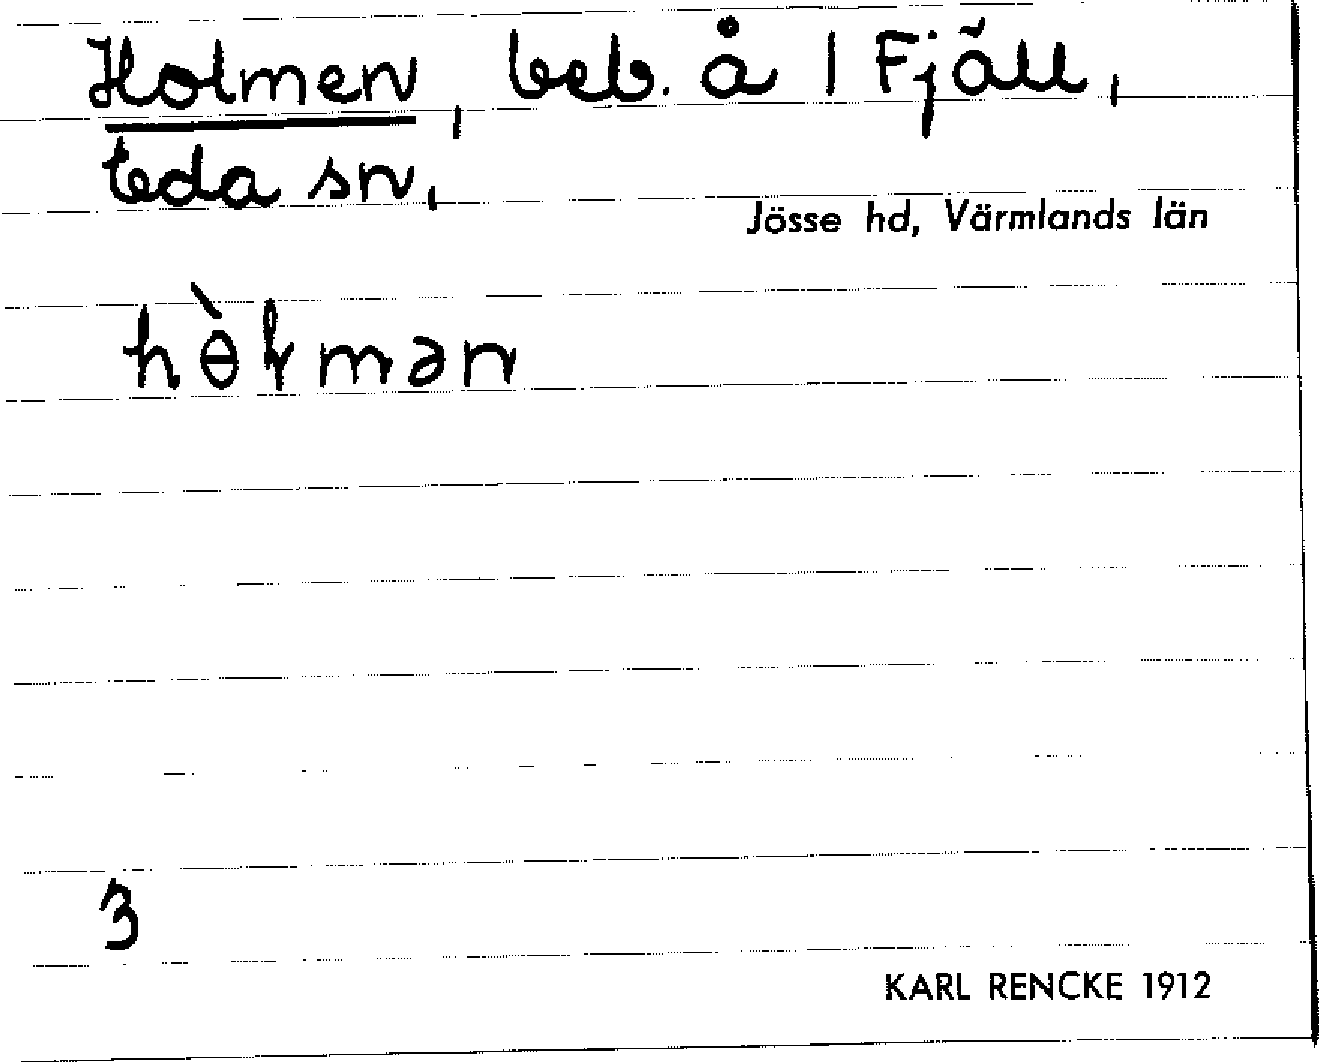 Holmen, beb. å 1 Fjäll,
Eda sn,
Jösse hd, Värmlands län
3
KARL RENCKE 1912